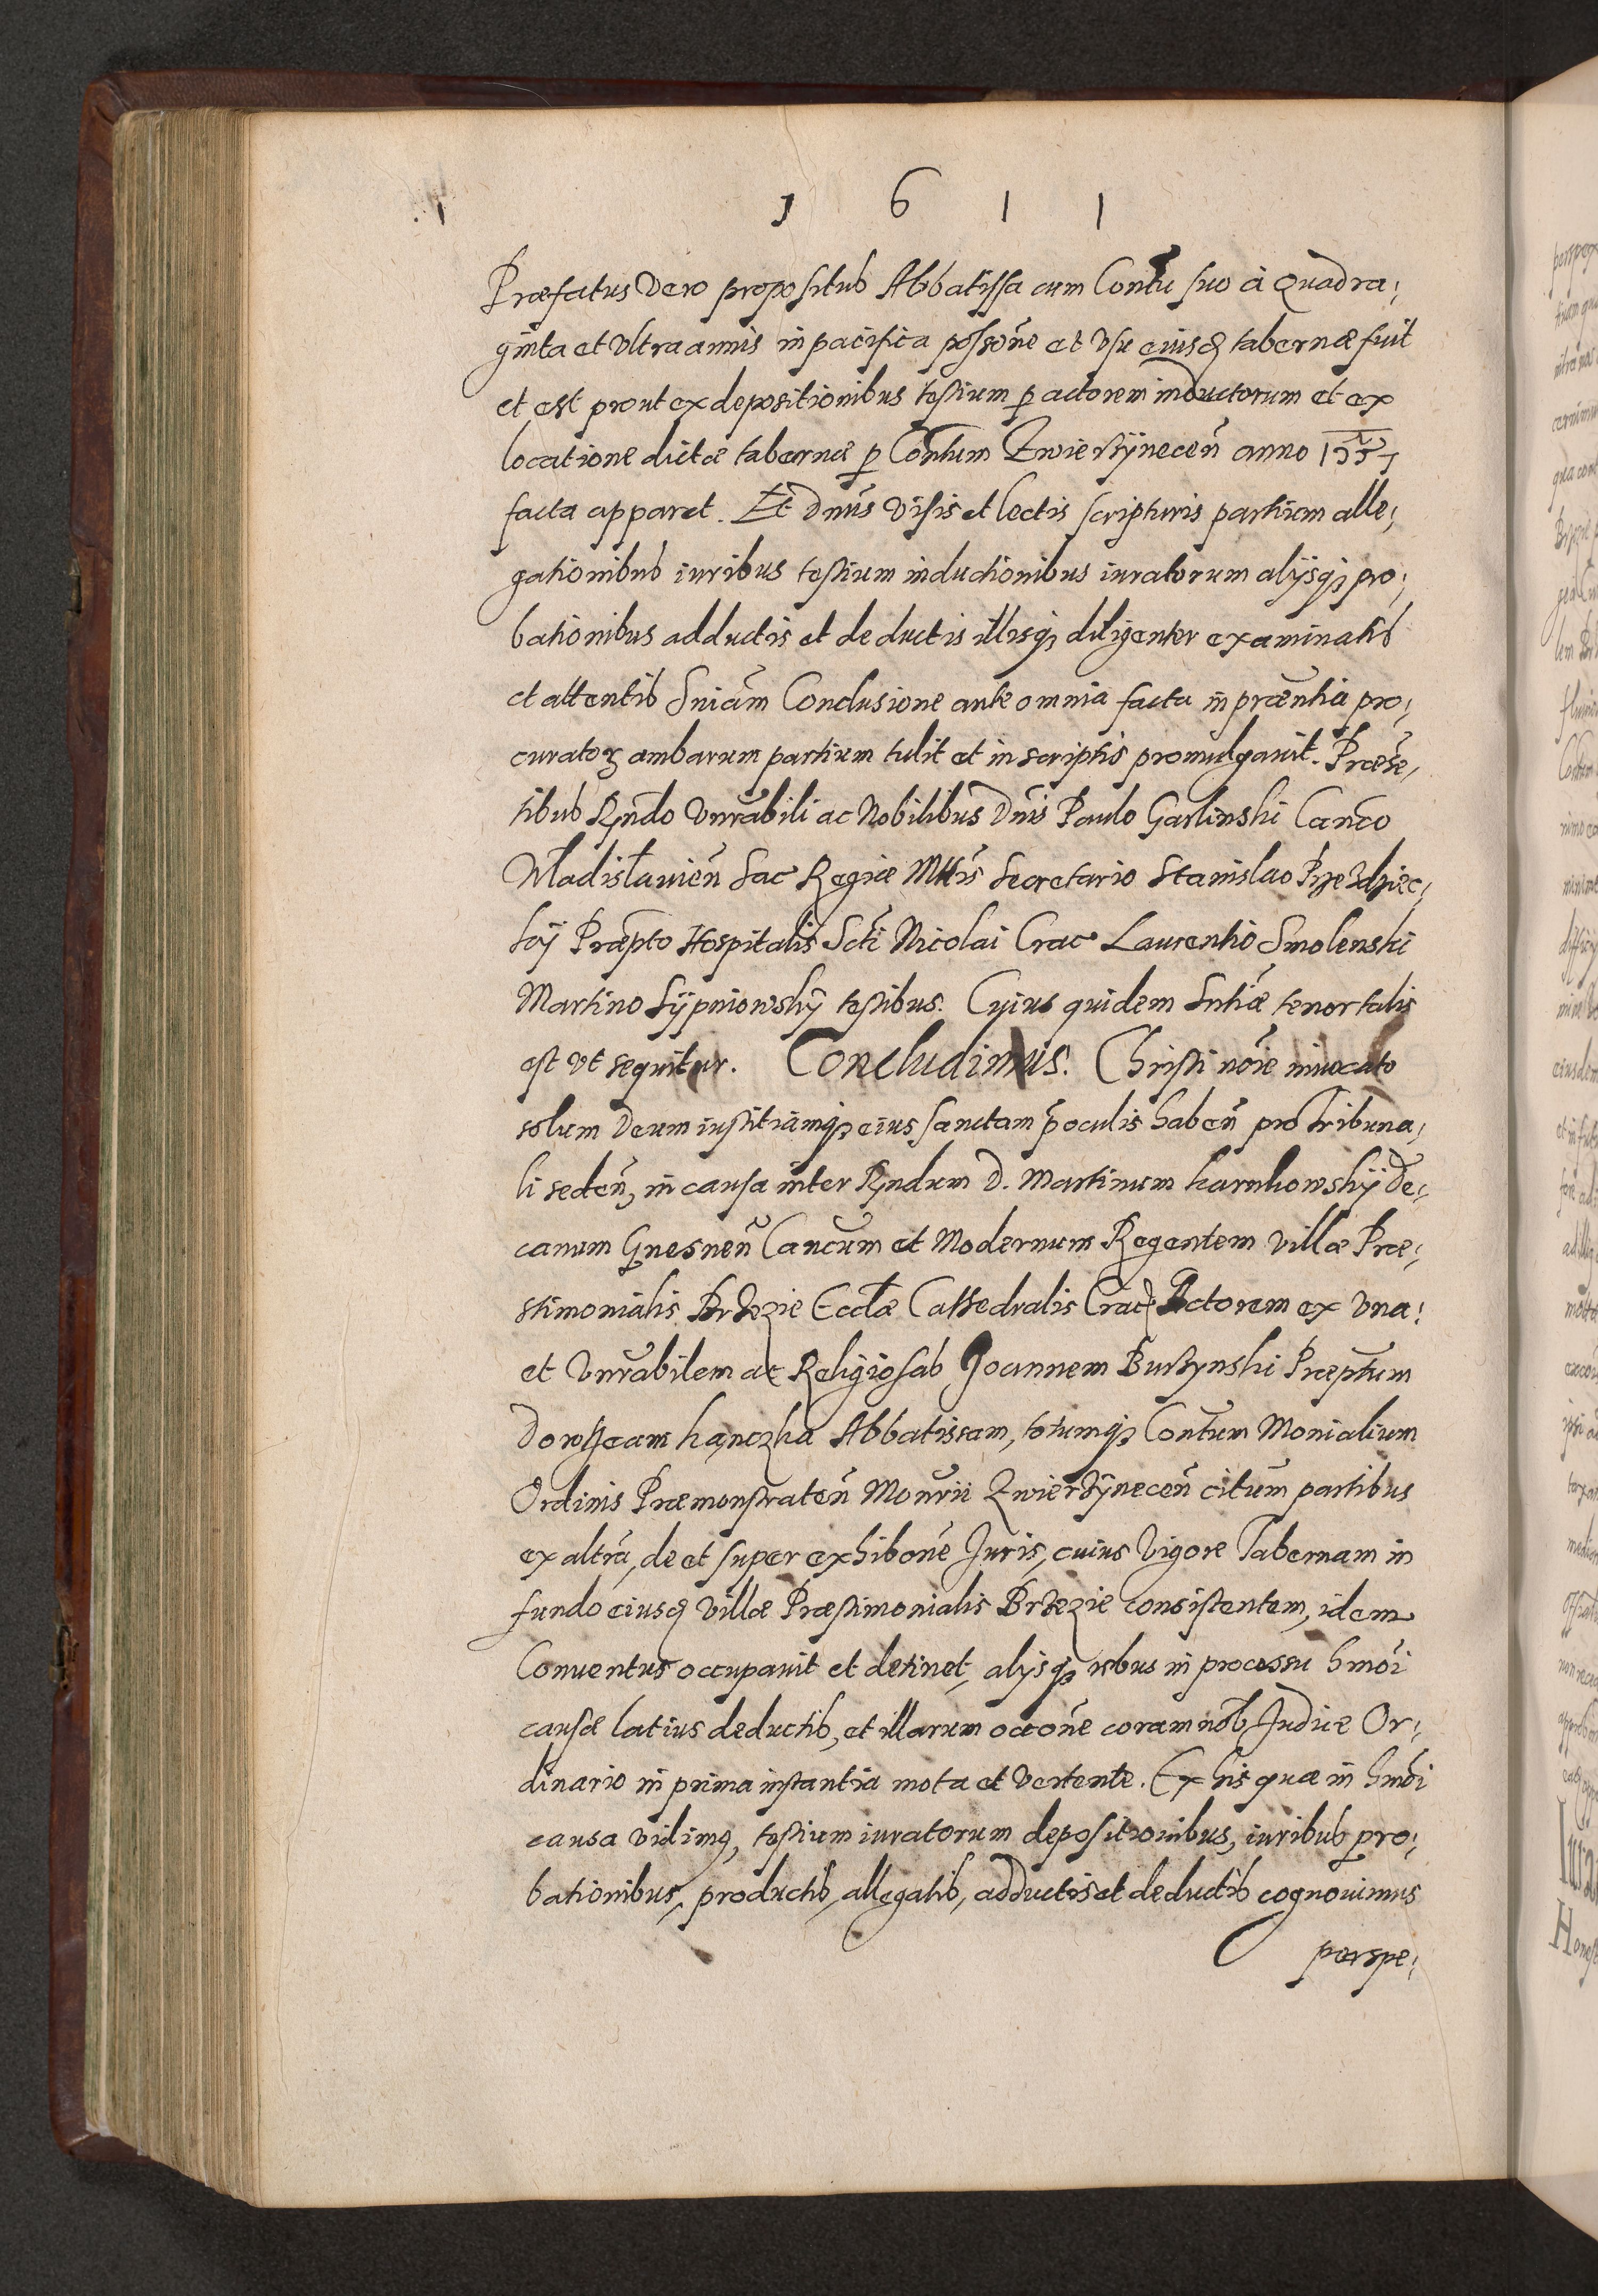 1 6 1 1
Præfatus Vero propositus Abbatissa cum Contu suo à Quadra¡
ginta et Vltra annis in pacifica possone et Vsu eiusd tabernæ fuit
et est prout ex depositionibus testium p actorem inductorum et ex
locatione dictæ tabernæ p Contum Zwierzÿnecen anno 1557
facta apparet. Et Dnus Visis et lectis scripturis partium alle¡
gationibus iuribus testium inductionibus iuratorum alijsq; pro¡
bationibus adductis et deductis illisq; diligenter examinatis
et attentis Sniam Conclusione ante omnia facta in præntia pro¡
curator ambarum partium tulit et in scriptis promulgauit. Præse¡
tibus Rndo Vnrabili ac Nobilibus Dnis Paulo Garlinski Canco
Wladislauien Sac Regiæ Mttis Secretario Stanislao Przezdziec¡
kÿ Præpto Hospitalis Scti Nicolai Crac Laurentio Smolenski
Martino Sÿpniowskÿ testibus. Cuius quidem Sntiæ tenor talis
est Vt sequitur. Concludimus. Christi noie inuocato
solum Deum iustitiamq; eius sanctam p oculis haben pro Tribuna¡
li seden, in causa inter Rndum D. Martinum karnkowskÿ De¡
canum Gnesnen Cancum et Modernum Regentem Villæ Præ¡
stimonialis Brzezie Eccliæ Cathedralis Crac Actorem ex Vna¡
et Vnrabilem ac Religiosas Joannem Burzynski Præptum
Dorotheam kąnczka Abbatissam, totumq; Contum Monialium
Ordinis Præmonstraten Monrii Zwierzÿnecen citum partibus
ex altra, de et super exhibone Juris, cuius Vigore Tabernam in
fundo eiusd Villæ Præstimonialis Brzezie consistentem, idem
Conuentus occupauit et detinet, alijsq; rebus in processu hmoi
causæ latius deductis, et illarum occone coram nob Judice Or¡
dinario in prima instantia mota et Vertente. Ex his quæ in hmoi
causa vidimq, testium iuratorum depositionibus, iuribus pro¡
bationibus, productis, allegatis, adductis et deductis cognouimus
perspe¡